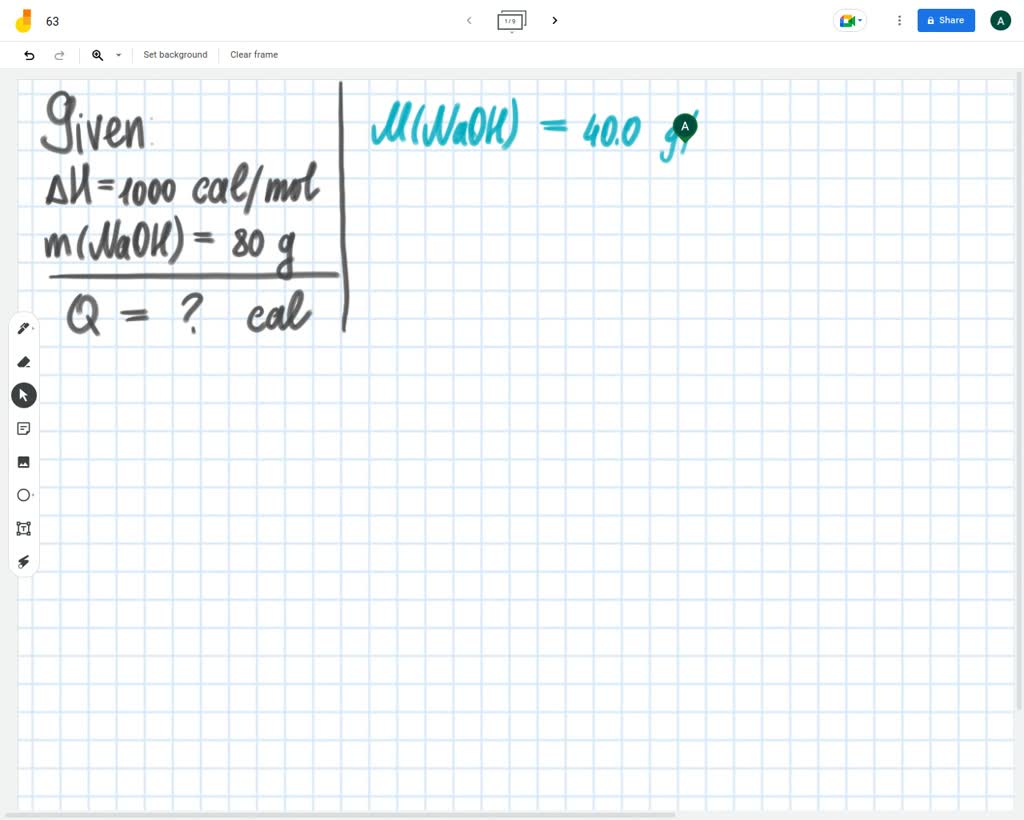 63
1/9
Share
A
Set background
Clear frame
Given:
ΔH = 1000 cal/mol
m(NaOH) = 80 g
Q = ? cal
M(NaOH) = 40.0 g/
A